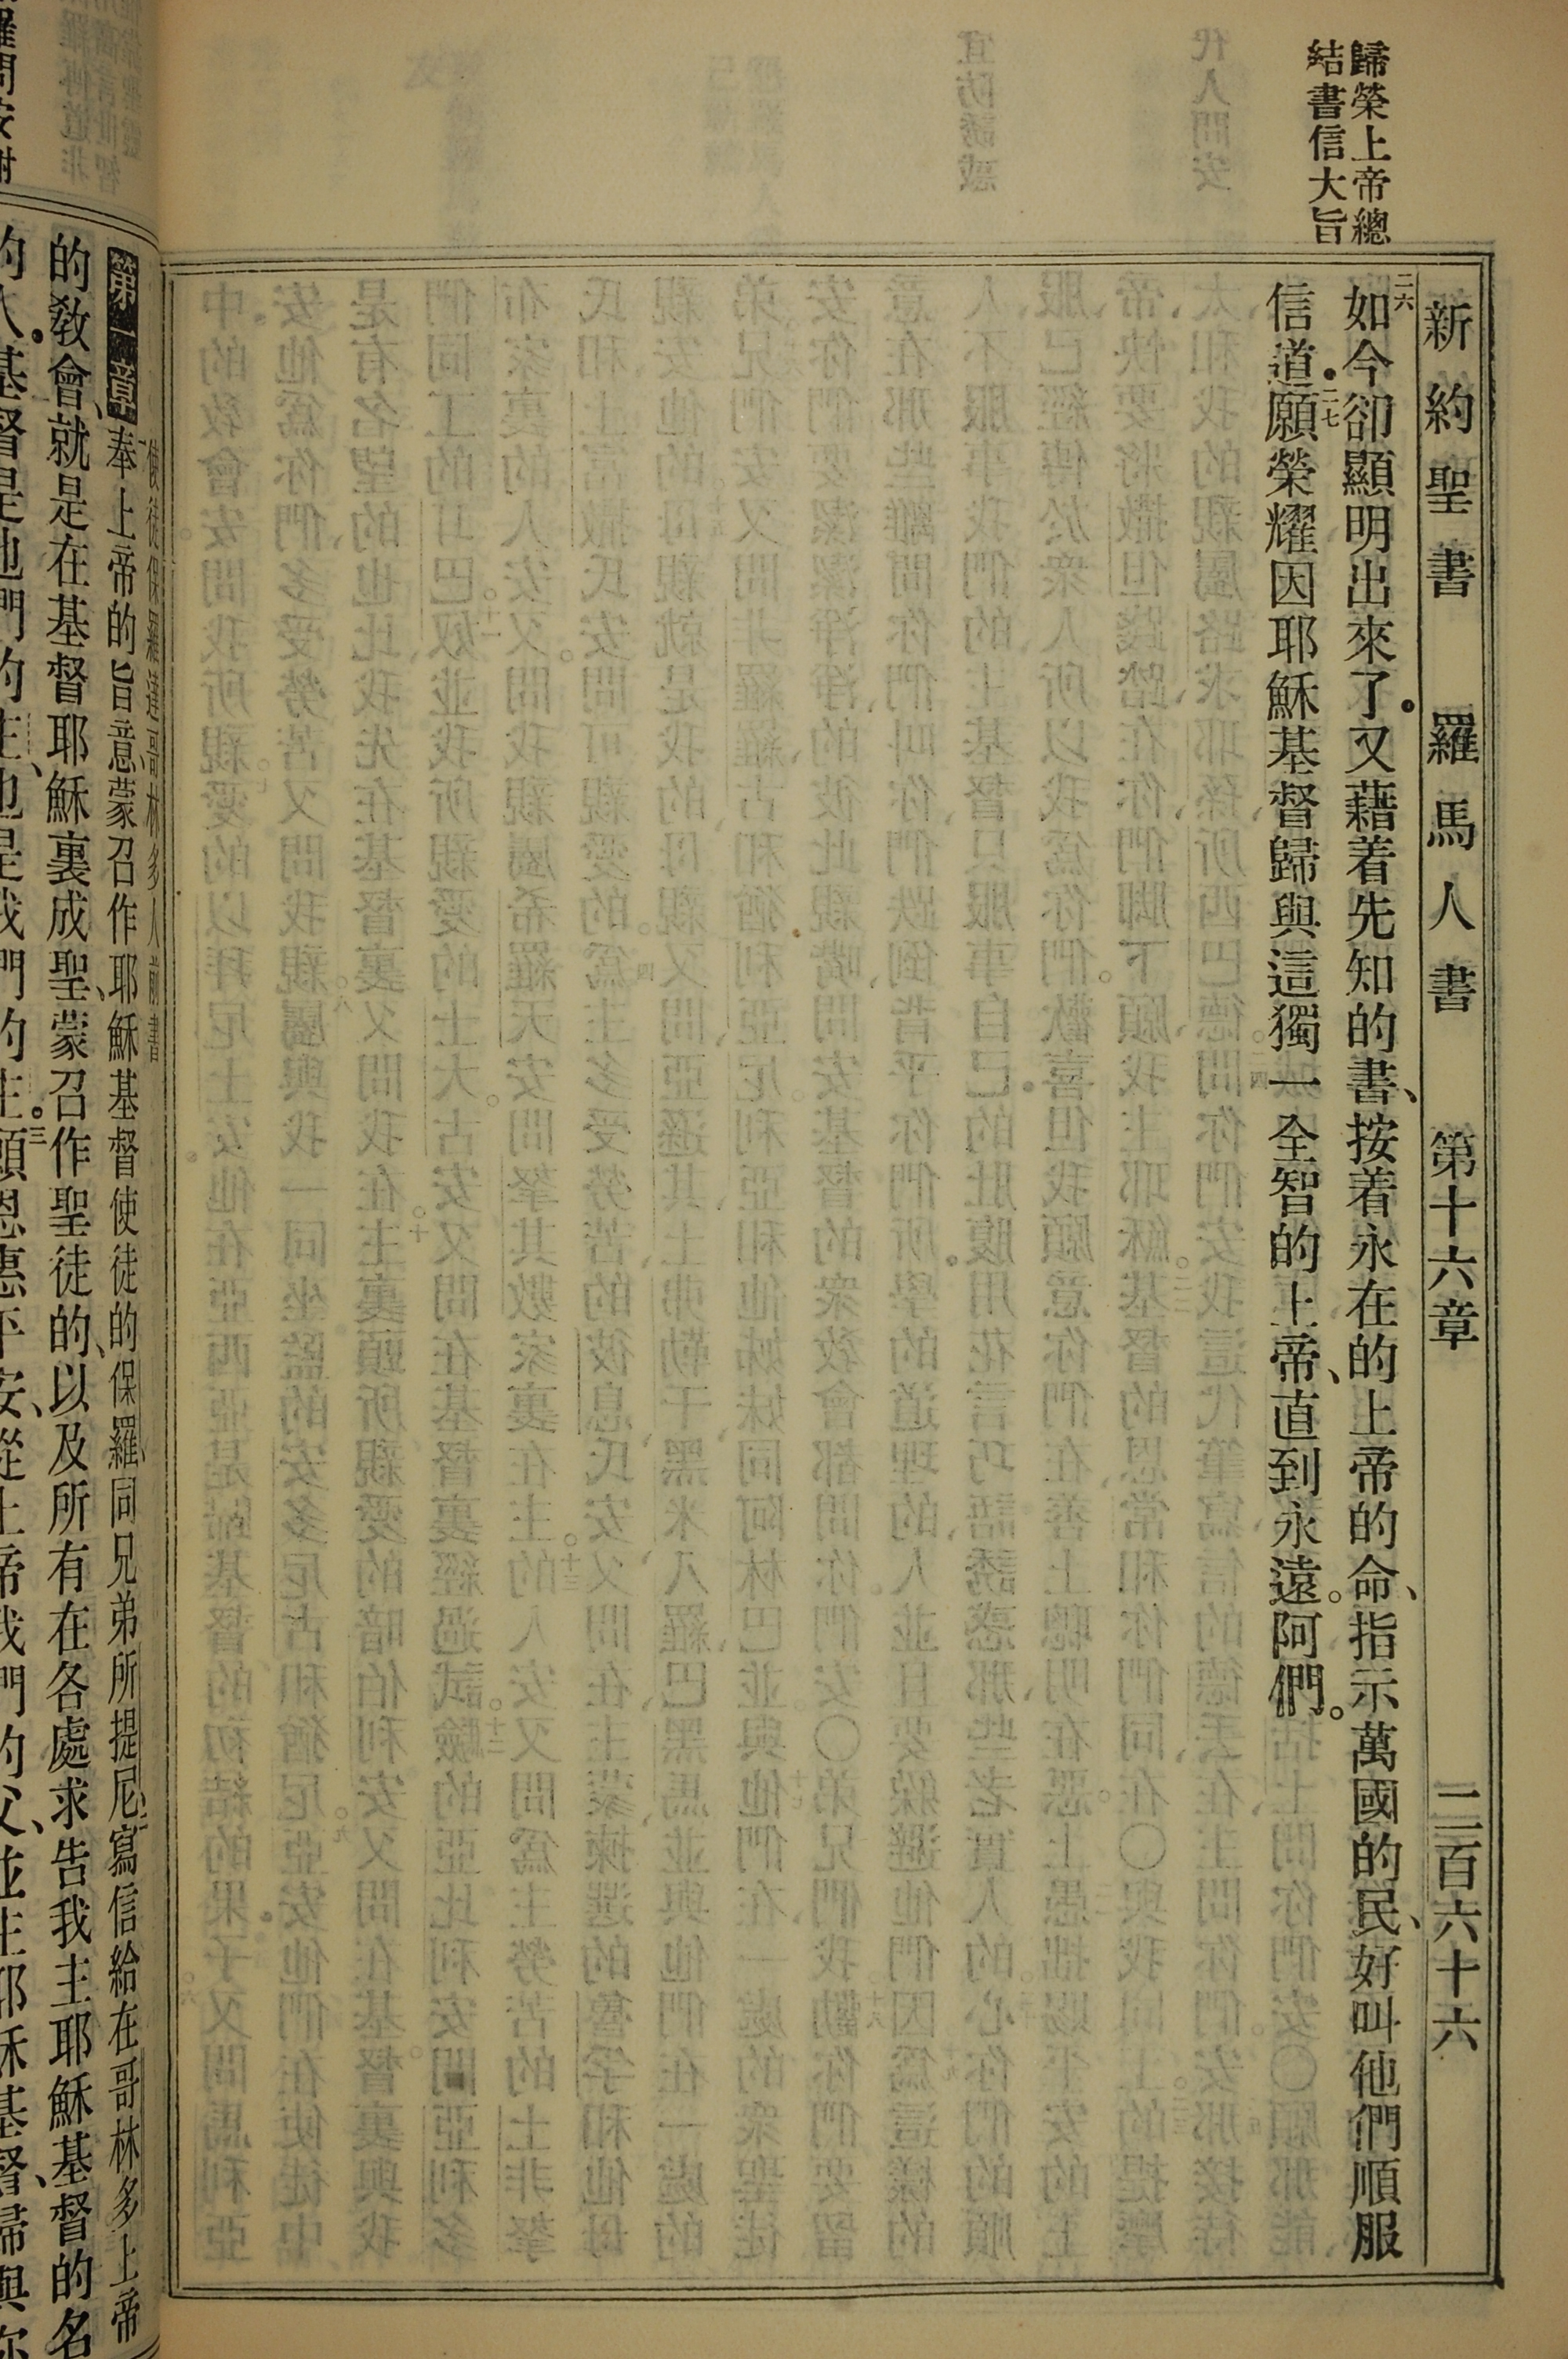 歸榮上帝總
結書信大旨
新約聖書 羅馬人書 第十六章 二百六十六
二六如今卻顯明出來了．又藉着先知的書、按着永在的上帝的命、指示萬國的民、好叫他們順服
信道．二七願榮耀因耶穌基督歸與這獨一全智的上帝、直到永遠。阿們。
使徒保羅達哥林多人前書
第一章 奉上帝的旨意、蒙召作耶穌基督使徒的保羅、同兄弟所提尼、寫信給在哥林多上帝
的教會、就是在基督耶穌裏成聖、蒙召作聖徒的、以及所有在各處求告我主耶穌基督的名
的人．基督是他們的主、也是我們的主．三願恩惠平安、從上帝我們的父、並主耶穌基督、歸與你